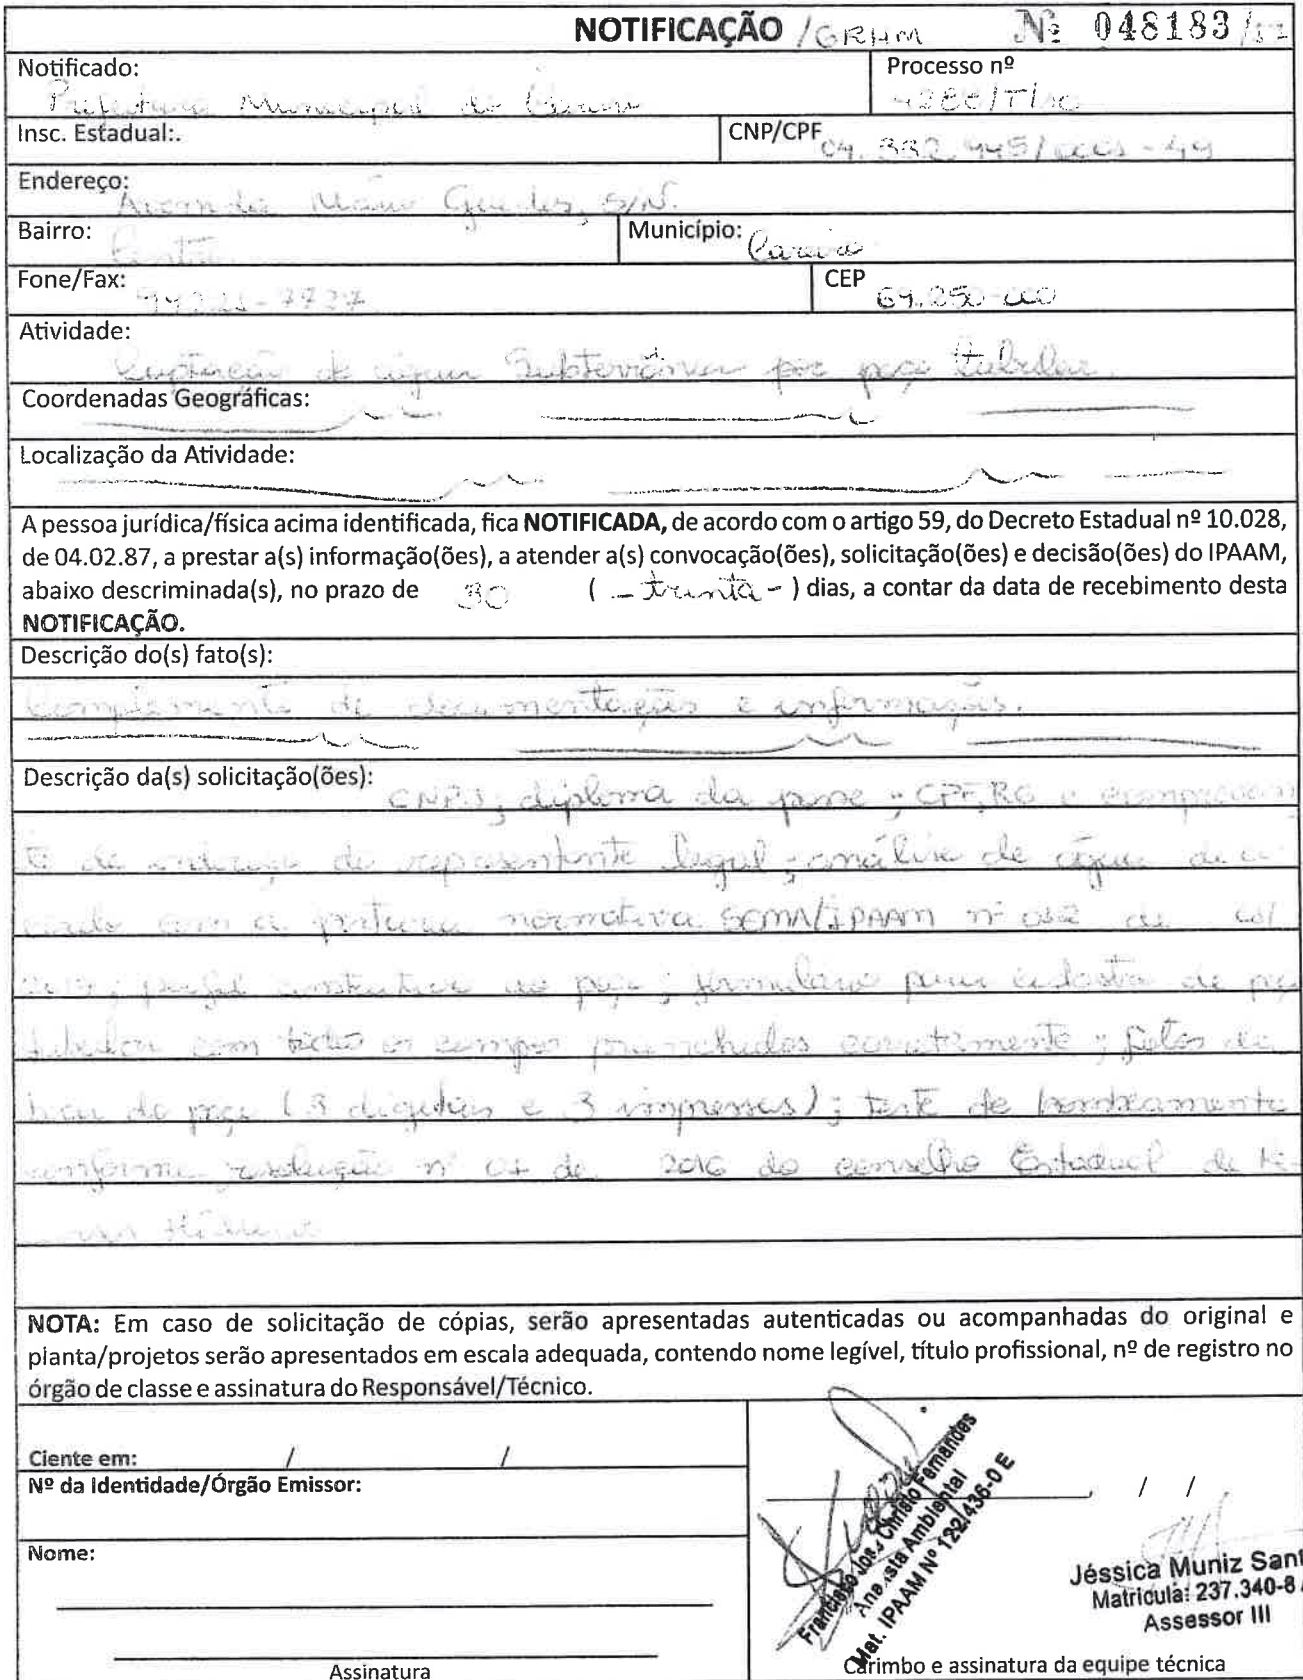 NOTIFICAÇÃO /GRHM Nº 048183/17
Notificado: Processo nº
Prefeitura Municipal do Careiro
Insc. Estadual:. CNP/CPF
Endereço:
Avenida Mário Guedes, S/N.
Bairro: Município: Careiro
Centro
Fone/Fax: CEP 69.250-000
Atividade:
Captação de água Subterrânea por poço tubular.
Coordenadas Geográficas:
Localização da Atividade:
A pessoa jurídica/física acima identificada, fica NOTIFICADA, de acordo com o artigo 59, do Decreto Estadual nº 10.028,
de 04.02.87, a prestar a(s) informação(ões), a atender a(s) convocação(ões), solicitação(ões) e decisão(ões) do IPAAM,
abaixo descriminada(s), no prazo de 30 ( - trinta - ) dias, a contar da data de recebimento desta
NOTIFICAÇÃO.
Descrição do(s) fato(s):
Complemento de documentações e informações.
Descrição da(s) solicitação(ões):
CNPJ; diploma da posse; CPF, RG e comprovan
te de endereço do representante legal; análise de água de a
cordo com a portaria normativa SEMA/IPAAM nº 012 de
perfil construtivo do poço; formulário para cadastro de poço
tubular com todos os campos preenchidos corretamente; fotos da
boca do poço (3 digitais e 3 impressas); teste de bombeamento
conforme resolução nº 01 de 2016 do conselho Estadual de Re
cursos Hídricos
NOTA: Em caso de solicitação de cópias, serão apresentadas autenticadas ou acompanhadas do original e
planta/projetos serão apresentados em escala adequada, contendo nome legível, título profissional, nº de registro no
órgão de classe e assinatura do Responsável/Técnico.
Ciente em: / /
Nº da Identidade/Órgão Emissor:
, / /
Nome:
Francisco José Christo Fernandes
Analista Ambiental
Mat. IPAAM Nº 122/436-0 E
Jéssica Muniz Sant
Matricula: 237.340-8
Assessor III
Assinatura
Carimbo e assinatura da equipe técnica